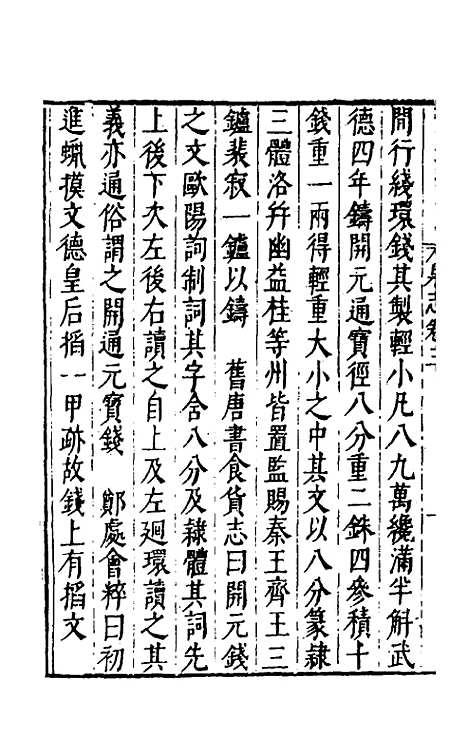 間行綫環錢其製輕小凡八九萬纔滿半斛武
德四年鑄開元通寶徑八分重二銖四參積十
錢重一兩得輕重大小之中其文以八分篆隸
三體洛幷幽益桂等州皆置監賜秦王齊王三
鑪裴寂一鑪以鑄　舊唐書食貨志曰開元錢
之文歐陽詞制詞其字含八分及隸體其詞先
上後下次左後右讀之自上及左迴環讀之其
義亦通俗謂之開通元寶錢　鄭處會粹曰初
進蝋摸文德皇后搯一甲跡故錢上有搯文